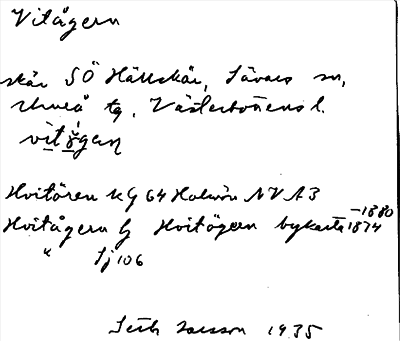 Vitågern
skär SÖ Hällskär, Sävars sn,
Umeå tg, Västerbottens l.
Hvitören kg 64 Holmön NV A3
Hvitågern lg Hvitögern bykarta 1874–1880
" Sj 106
Seth Larsson 1935